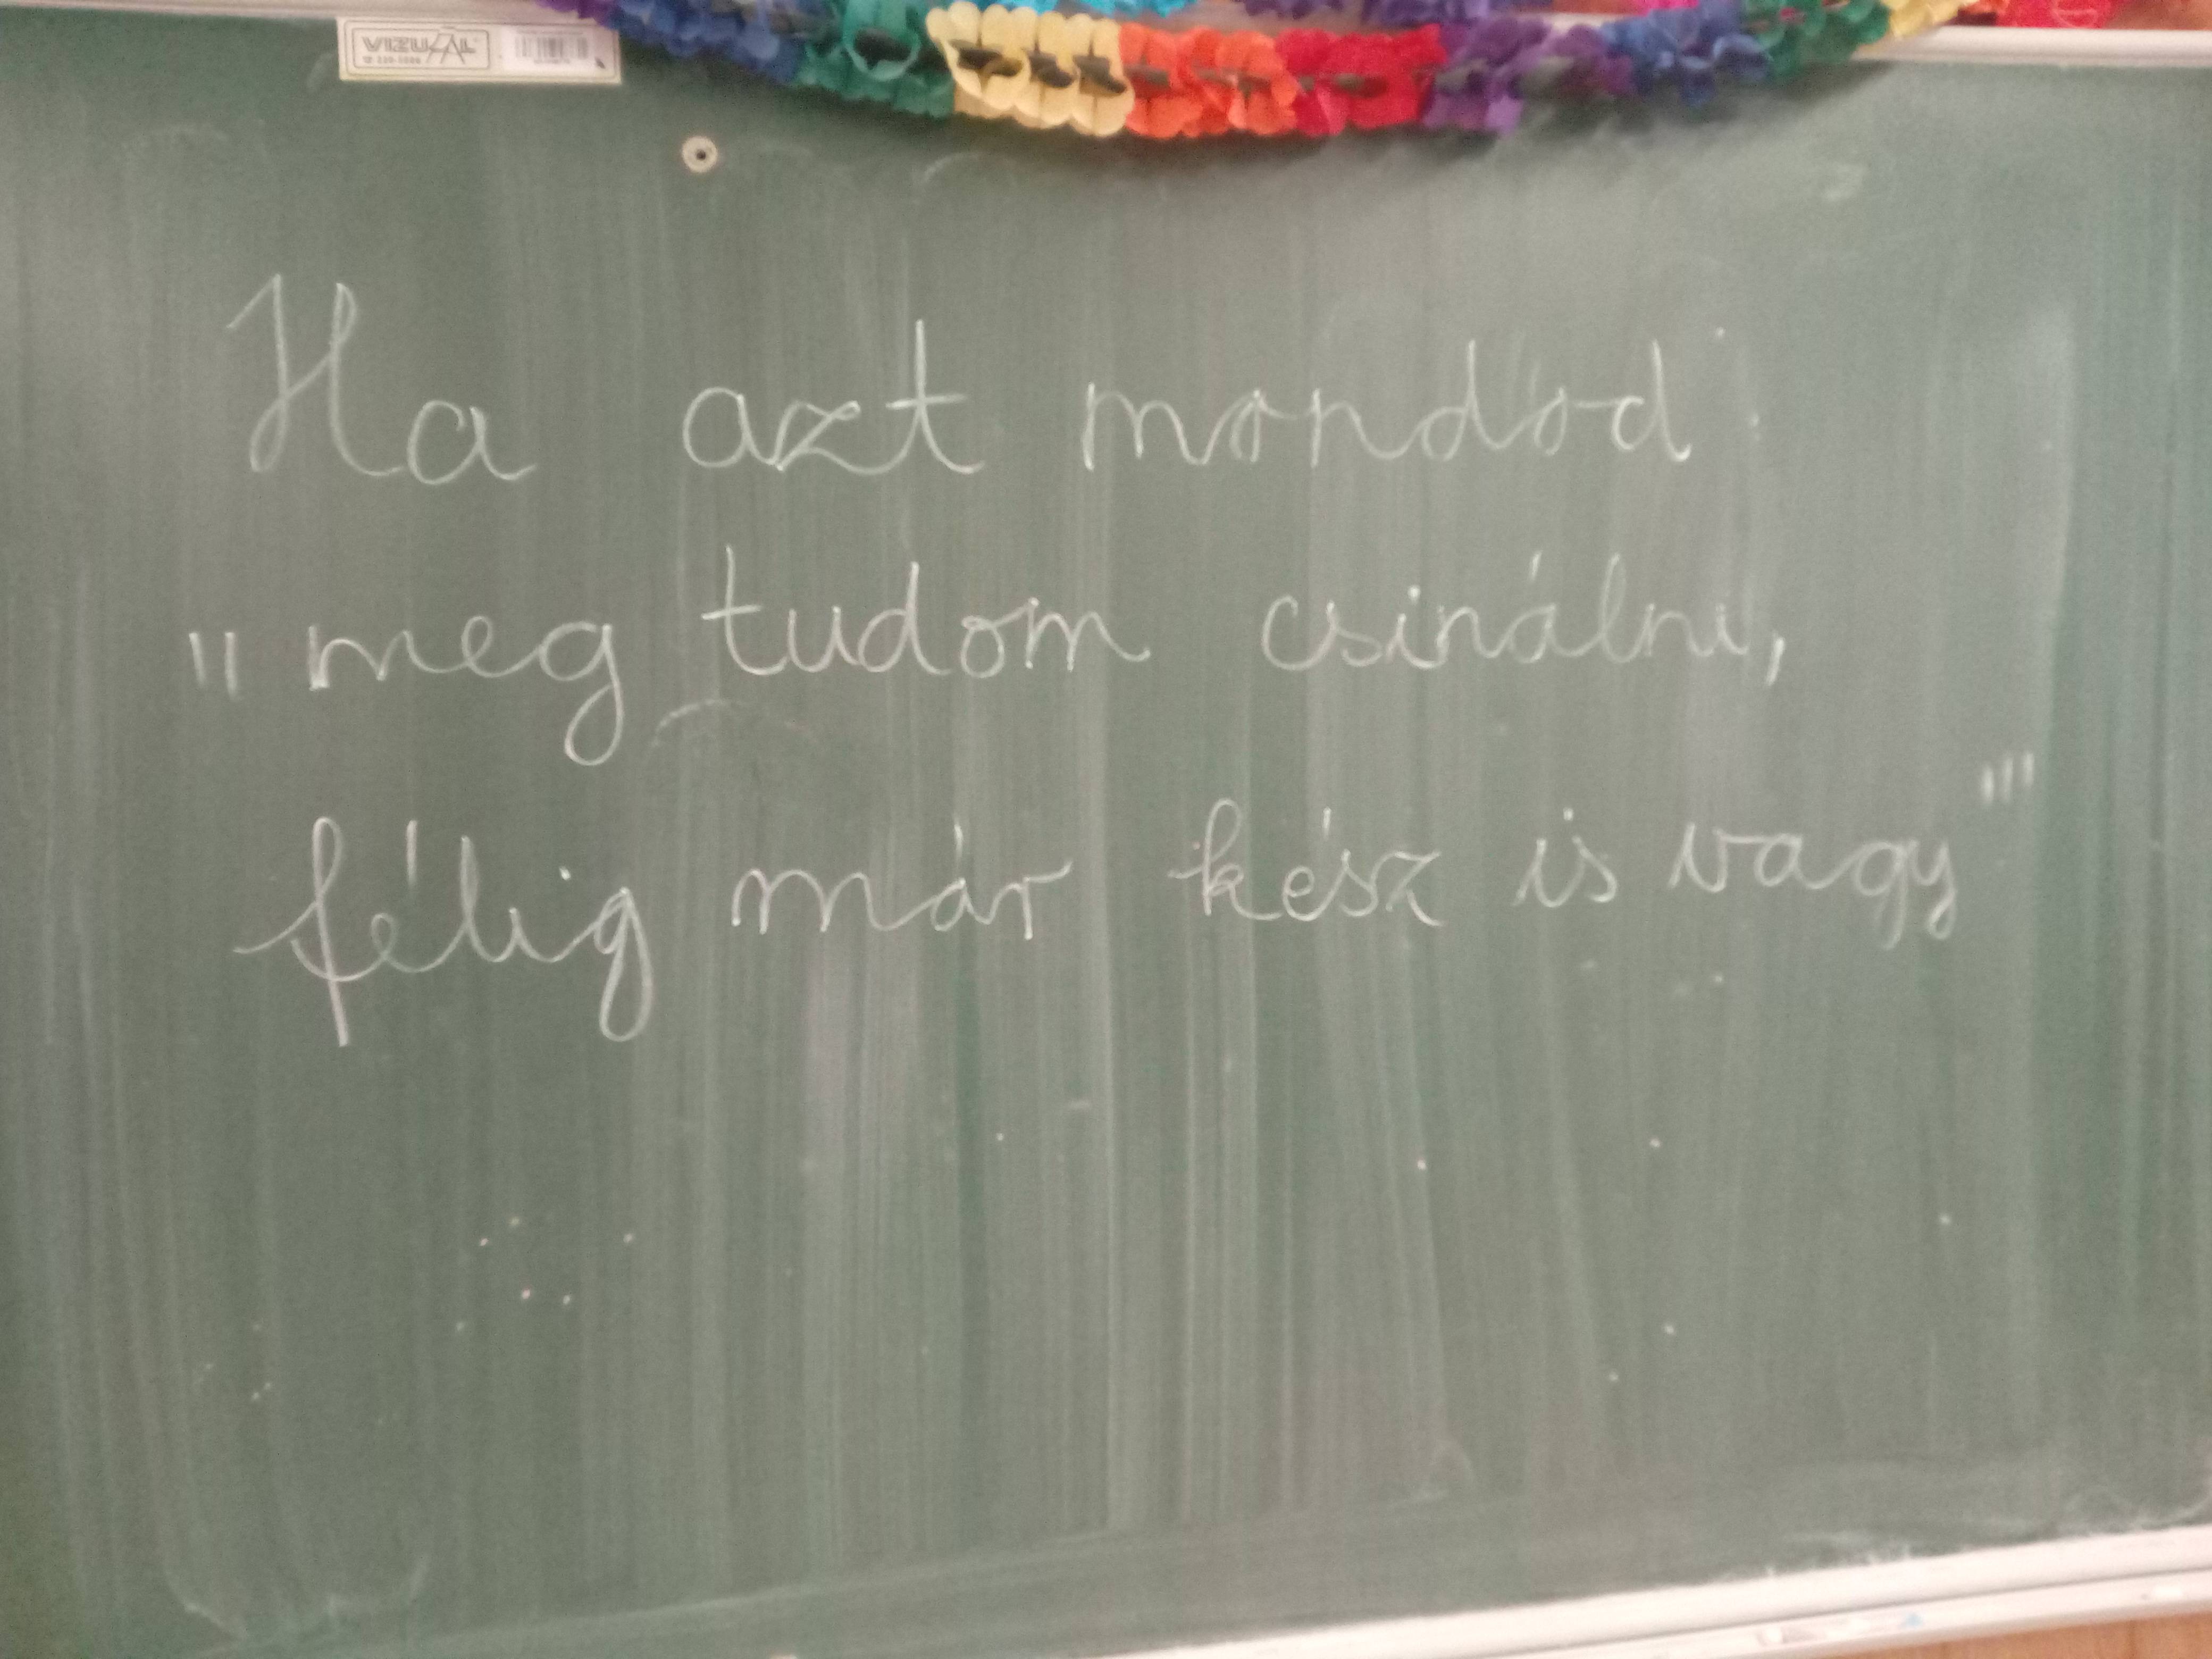 VIZUÁL
Ha azt mondod
"meg tudom csinálni,
félig már kész is vagy"